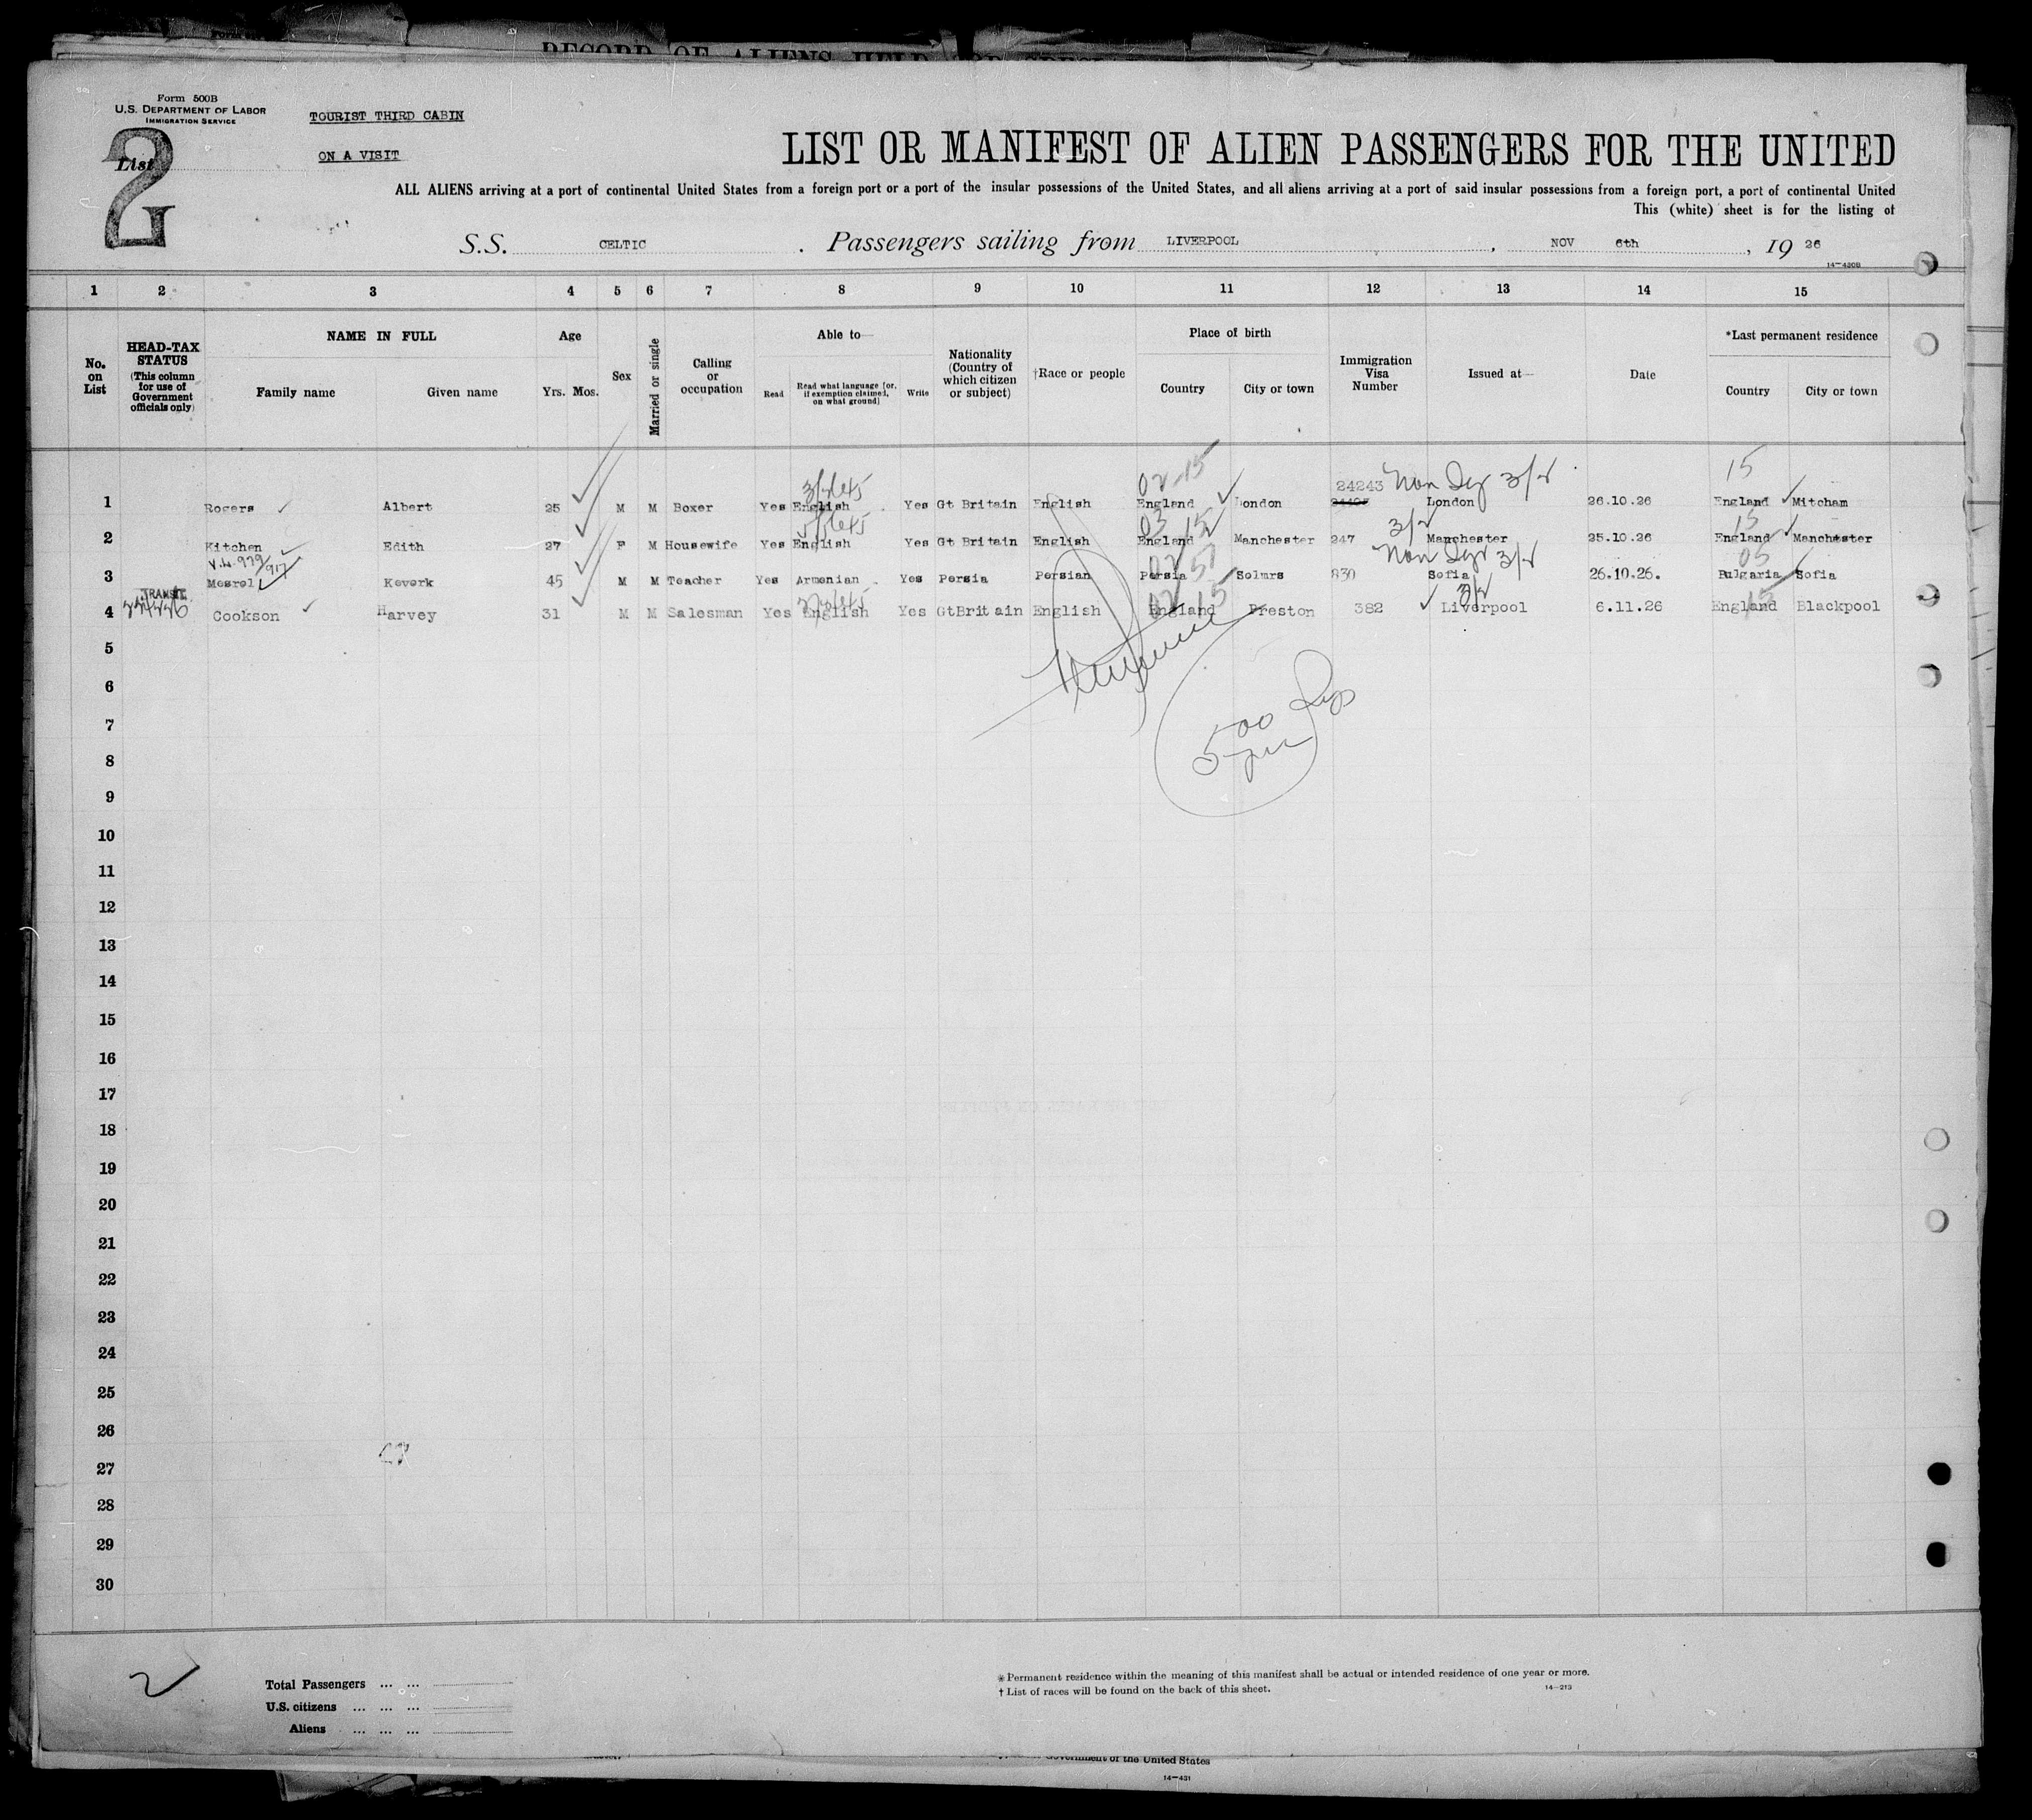 RECORD OF ALIENS HELD FOR SPECI
Form 500B
U.S. DEPARTMENT OF LABOR
IMMIGRATION SERVICE
TOURIST THIRD CABIN
ON A VISIT
List 2
LIST OR MANIFEST OF ALIEN PASSENGERS FOR THE UNITED
ALL ALIENS arriving at a port of continental United States from a foreign port or a port of the insular possessions of the United States, and all aliens arriving at a port of said insular possessions from a foreign port, a port of continental United
This (white) sheet is for the listing of
S.S. CELTIC. Passengers sailing from LIVERPOOL, NOV 6th, 19 26
14-430B
1 2 3 4 5 6 7 8 9 10 11 12 13 14 15
No. on List
HEAD-TAX STATUS (This column for use of Government officials only)
NAME IN FULL
Family name Given name
Age
Yrs. Mos.
Sex
Married or single
Calling or occupation
Able to—
Read Read what language (or, if exemption claimed, on what ground) Write
Nationality (Country of which citizen or subject)
†Race or people
Place of birth
Country City or town
Immigration Visa Number
Issued at—
Date
*Last permanent residence
Country City or town
02-15 24243 Non 3/2 15
1 Rogers Albert 25 M M Boxer Yes English Yes Gt Britain English England London London 26.10.26 England Mitcham
03 15 3/2 15
2 Kitchen Edith 27 F M Housewife Yes English Yes Gt Britain English England Manchester 247 Manchester 25.10.26 England Manchester
V.L. 979/917 Non 3/2 05
3 Mesrol Kevork 45 M M Teacher Yes Armenian Yes Persia Persian Persia Solmrs 830 Sofia 26.10.26. Bulgaria Sofia
TRANSIT 02 15 3/2 15
4 Cookson Harvey 31 M M Salesman Yes English Yes GtBritain English England Preston 382 Liverpool 6.11.26 England Blackpool
5
6
7
500
8
9
10
11
12
13
14
15
16
17
18
19
20
21
22
23
24
25
26
27
28
29
30
2
Total Passengers ... ...
U.S. citizens ... ... ...
Aliens ... ... ...
* Permanent residence within the meaning of this manifest shall be actual or intended residence of one year or more.
† List of races will be found on the back of this sheet.
14-213
Government of the United States
14-431